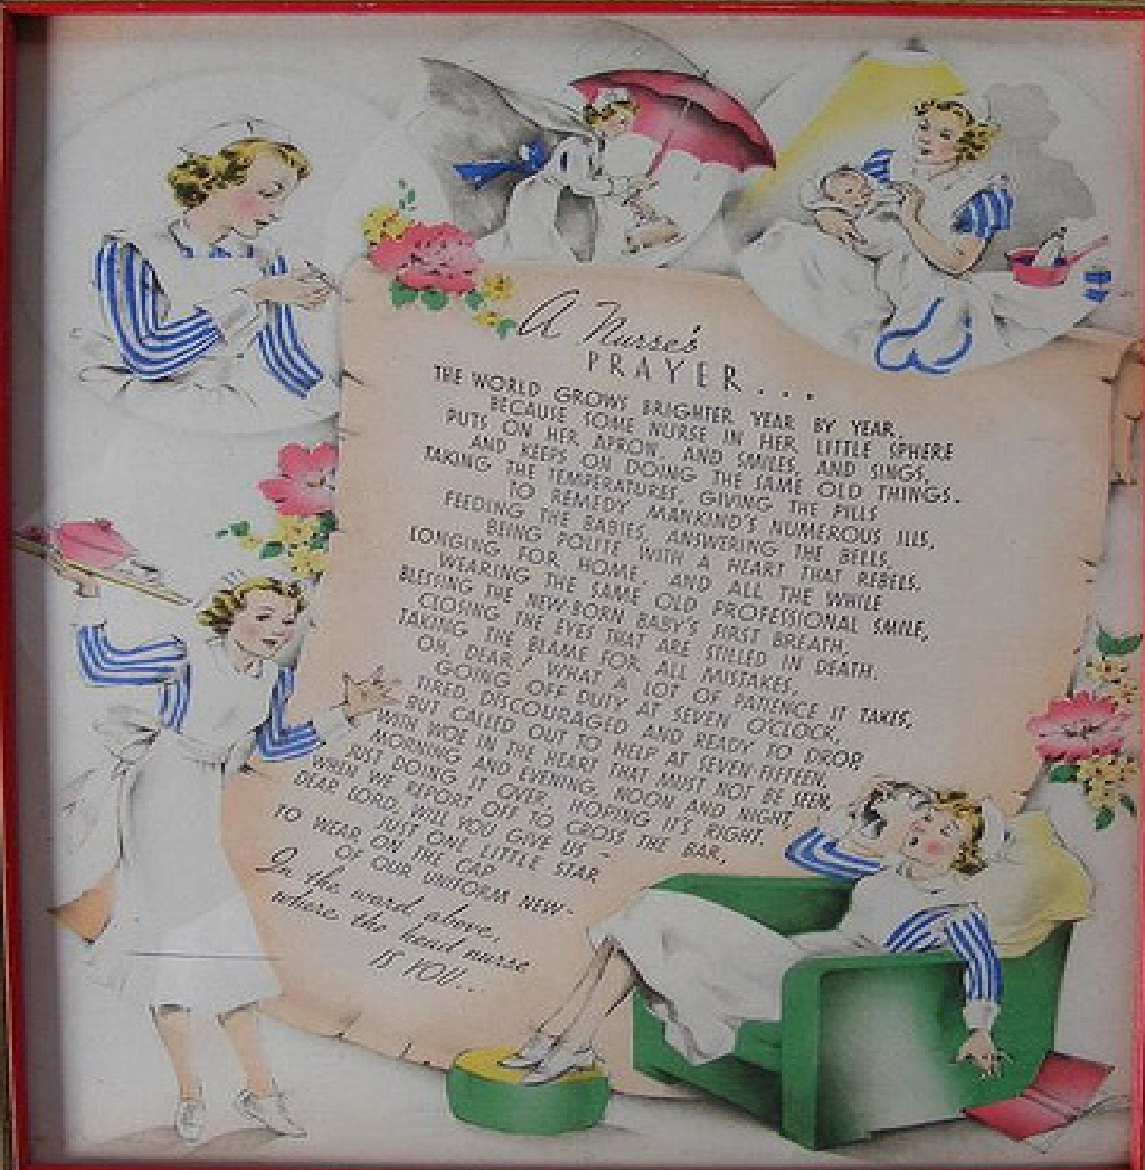 A Nurse's
PRAYER...
THE WORLD GROWS BRIGHTER YEAR BY YEAR,
BECAUSE SOME NURSE IN HER LITTLE SPHERE
PUTS ON HER APRON, AND SMILES, AND SINGS,
AND KEEPS ON DOING THE SAME OLD THINGS.
TAKING THE TEMPERATURES, GIVING THE PILLS
TO REMEDY MANKIND'S NUMEROUS ILLS,
FEEDING THE BABIES, ANSWERING THE BELLS,
BEING POLITE WITH A HEART THAT REBELS.
LONGING FOR HOME, AND ALL THE WHILE
WEARING THE SAME OLD PROFESSIONAL SMILE,
BLESSING THE NEW-BORN BABY'S FIRST BREATH,
CLOSING THE EYES THAT ARE STILLED IN DEATH.
TAKING THE BLAME FOR ALL MISTAKES,
OH, DEAR! WHAT A LOT OF PATIENCE IT TAKES,
GOING OFF DUTY AT SEVEN O'CLOCK,
TIRED, DISCOURAGED AND READY TO DROP
BUT CALLED OUT TO HELP AT SEVEN-FIFTEEN,
WITH WOE IN THE HEART THAT MUST NOT BE SEEN,
MORNING AND EVENING, NOON AND NIGHT
JUST DOING IT OVER, HOPING IT'S RIGHT.
WHEN WE REPORT OFF TO CROSS THE BAR,
DEAR LORD, WILL YOU GIVE US -
JUST ONE LITTLE STAR
TO WEAR ON THE CAP
OF OUR UNIFORM NEW-
In the word above,
where the head nurse
IS YOU...